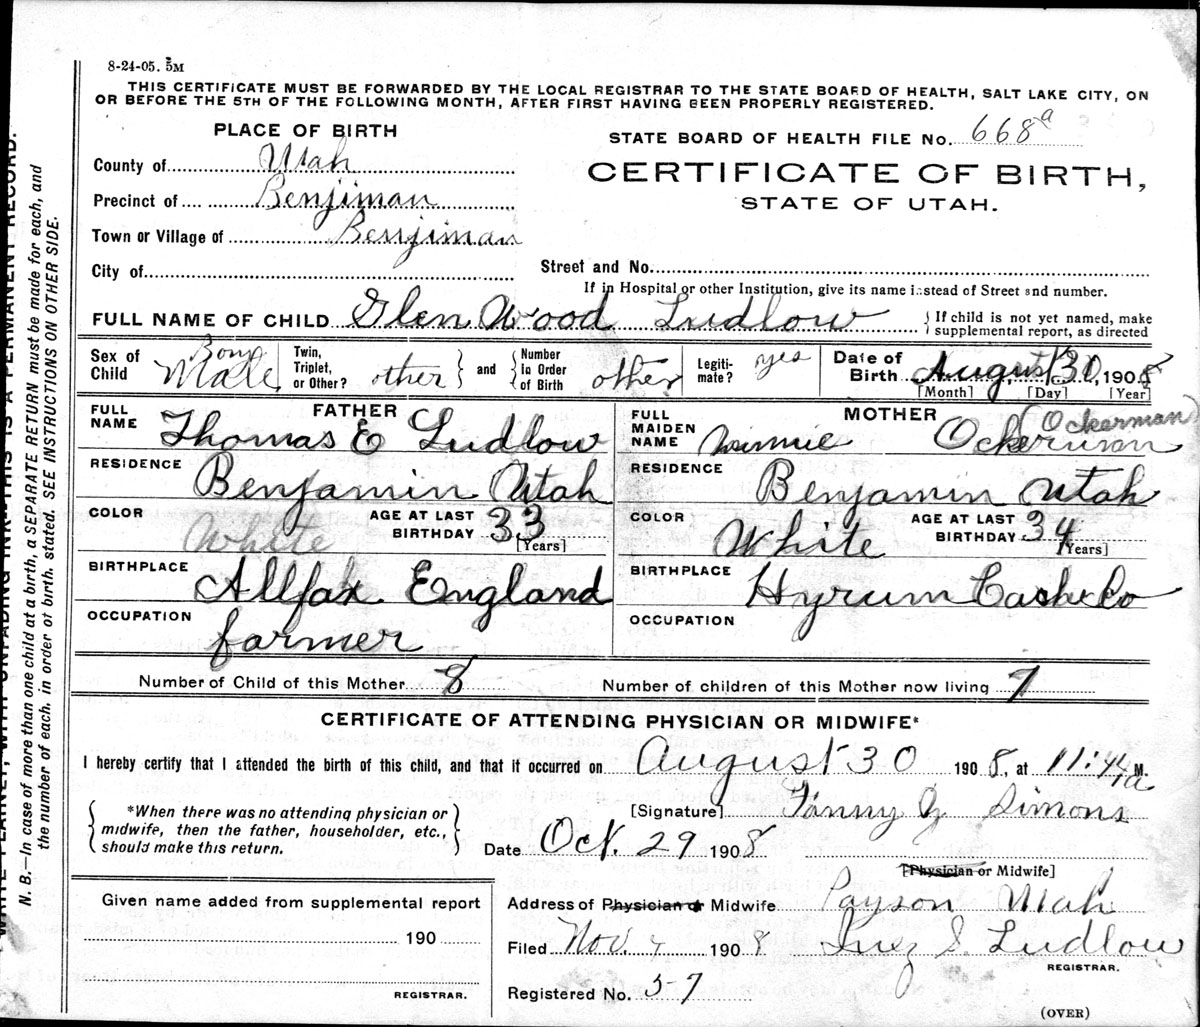 8-24-05. 5M
THIS CERTIFICATE MUST BE FORWARDED BY THE LOCAL REGISTRAR TO THE STATE BOARD OF HEALTH, SALT LAKE CITY, ON
OR BEFORE THE 5TH OF THE FOLLOWING MONTH, AFTER FIRST HAVING BEEN PROPERLY REGISTERED.
PLACE OF BIRTH
STATE BOARD OF HEALTH FILE No. 668a
County of Utah
CERTIFICATE OF BIRTH,
STATE OF UTAH.
Precinct of Benjiman
Town or Village of Benjiman
City of
Street and No.
If in Hospital or other Institution, give its name instead of Street and number.
FULL NAME OF CHILD Glen Wood Ludlow { If child is not yet named, make supplemental report, as directed
Sex of Child Boy Male Twin, Triplet, or Other? other } and { Number In Order of Birth other Legiti-mate? yes Date of Birth August 30, 1908
[Month] [Day] [Year]
FATHER
FULL NAME Thomas E Ludlow
RESIDENCE Benjamin Utah
COLOR White AGE AT LAST BIRTHDAY 33 [Years]
BIRTHPLACE Allfax England
OCCUPATION farmer
MOTHER
FULL MAIDEN NAME Winnie Ockerman (Ockerman)
RESIDENCE Benjamin Utah
COLOR White AGE AT LAST BIRTHDAY 34 [Years]
BIRTHPLACE Hyrum Cache Co
OCCUPATION
Number of Child of this Mother 8 Number of children of this Mother now living 7
CERTIFICATE OF ATTENDING PHYSICIAN OR MIDWIFE*
I hereby certify that I attended the birth of this child, and that it occurred on August 30 1908, at 11:44 a M.
{ *When there was no attending physician or midwife, then the father, householder, etc., should make this return. }
[Signature] Fanny G Simons
Date Oct. 29 1908
[Physician or Midwife]
Given name added from supplemental report
190
REGISTRAR.
Address of Physician or Midwife Payson Utah
Filed Nov. 4 1908 Inez S. Ludlow
REGISTRAR.
Registered No. 57
(OVER)
WRITE PLAINLY, WITH UNFADING INK—THIS IS A PERMANENT RECORD.
N. B.—In case of more than one child at a birth, a SEPARATE RETURN must be made for each, and
the number of each, in order of birth, stated. SEE INSTRUCTIONS ON OTHER SIDE.